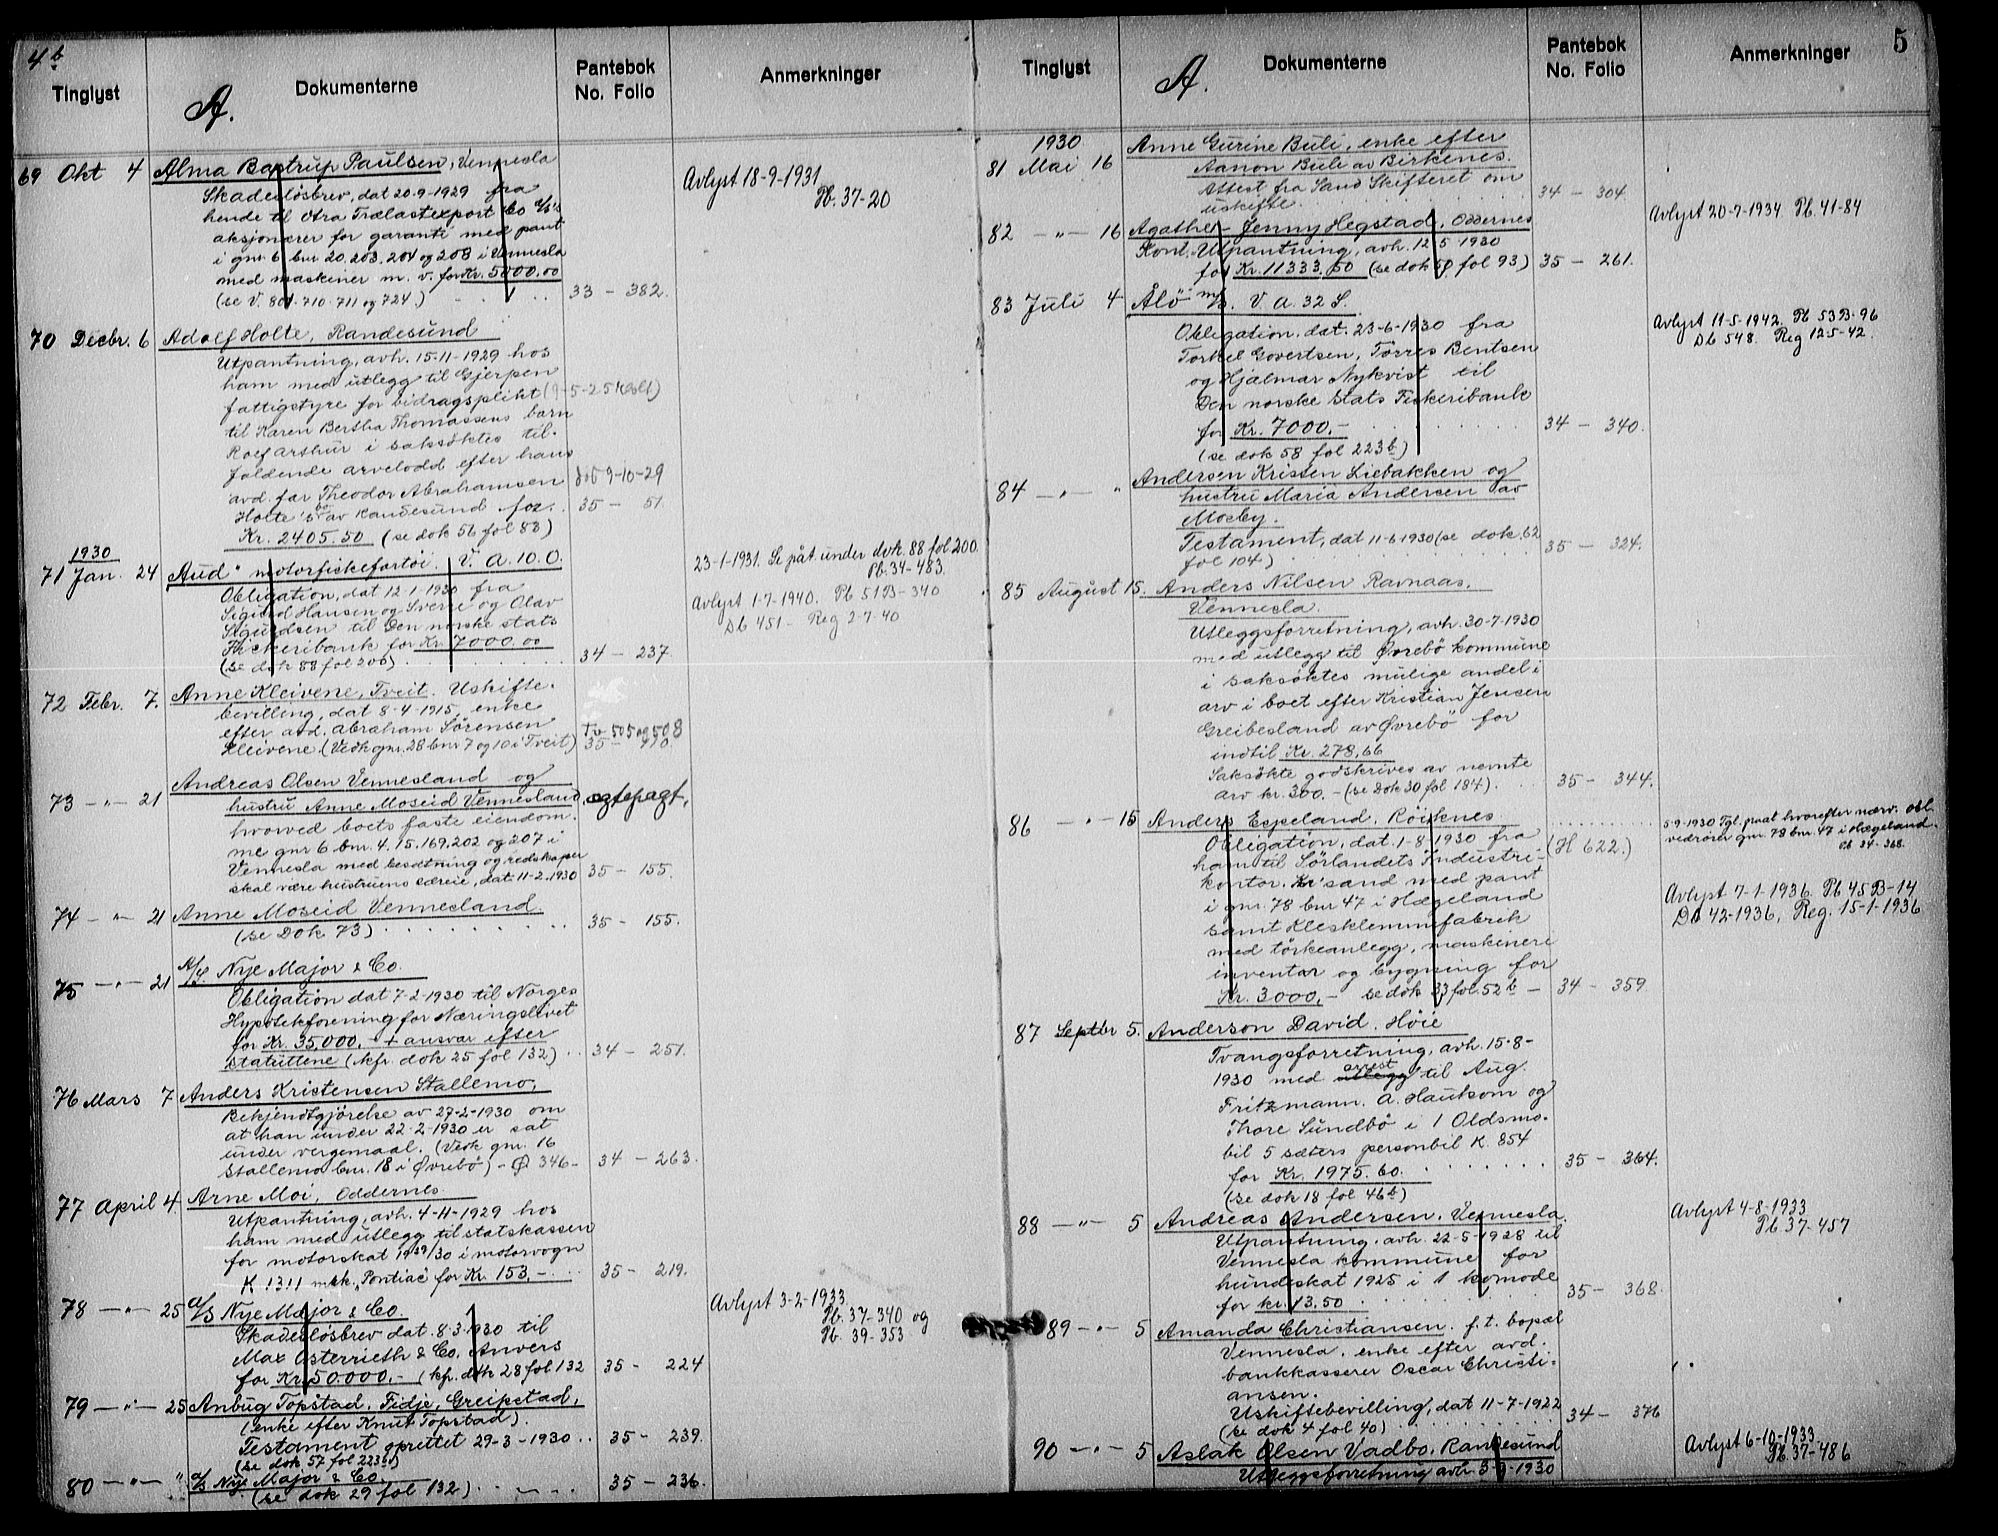 4b
Tinglyst
A.
Dokumenterne
Pantebok
No. Folio
Anmerkninger
69 Okt 4 Alma Bastrup Paulsen, Vennesla
Skadeslösbrev, dat 20-9-1929 fra
hende til Otra Trælastexport Co A/S's
aksjonærer for garanti med pant
i gnr 6 bnr 20, 203, 204 og 208 i Vennesla
med maskiner m. v. for Kr. 5000.00
(se V. 801. 710. 711 og 724.) 33 - 382.
Avlyst 18-9-1931
Pb. 37-20
70 Decbr. 6 Adolf Holte, Randesund
Utpantning, avh. 15-11-1929 hos
ham med utlegg til Gjerpen
fattigstyre for bidragsplikt
til Karen Bertha Thomassens barn
Rolf Arthur i saksöktes til-
faldende arvelodd efter hans
avd. far Theodor Abrahamsen 9-10-29
Holte's bo av Randesund for. 35 - 51.
Kr. 2405.50 (se dok 56 fol 88)
1930
71 Jan. 24 Aud" motorfiskefartöi. V. A. 10. O.
Obligation, dat 12-1-1930 fra
Sigurd Hansen og Sverre og Olav
Sigurdsen til Den norske stats
Fiskeribank for Kr. 7000.00
(se dok 88 fol 200) 34 - 237.
23-1-1931. Se påt. under dok. 88 fol 200.
Pb. 34-483.
Avlyst 1-7-1940. Pb 51B-340
Db 451 - Reg 2-7-40
72 Febr. 7. Anne Kleivene, Tveit. Uskifte-
bevilling, dat 8-4-1915, enke
efter avd. Abraham Sörensen
Kleivene (Vedk gnr. 28 bnr 7 og 10 i Tveit)
Tv 505 og 508
35 - 110.
73 -"- 21 Andreas Olsen Vennesland og
hustru Anne Moseid Vennesland, egtepagt,
hvorved boets faste eiendom-
me gnr 6 bnr. 4. 15. 169, 202 og 207 i
Vennesla med besætning og redskaper
skal være hustruens særeie, dat. 11-2-1930 35 - 155.
74 -"- 21 Anne Moseid Vennesland.
(se Dok 73) 35 - 155.
75 -"- 21 A/S. Nye Major & Co.
Obligation dat 7-2-1930 til Norges
Hypotekforening for Næringslivet
for Kr. 35.000.- + ansvar efter
statuttene (kfr. dok 25 fol 132) 34 - 251.
76 Mars 7 Anders Kristensen Stallemo,
Bekjendtgjörelse av 27-2-1930 om
at han under 22-2-1930 er sat
under vergemaal. (Vedk gnr. 16
Stallemo bnr. 18 i Øvrebö) - Ø 346 - 34 - 263.
77 April 4 Arne Moi, Oddernes
Utpantning, avh. 4-11-1929 hos
ham med utlegg til statskassen
for motorskat 1929/30 i motorvogn
K 1311 mrk. "Pontiac" for Kr. 153.- 35 - 219.
78 -"- 25 A/S Nye Major & Co.
Skadeslösbrev dat. 8-3-1930 til
Max Osterrieth & Co, Anvers
for Kr. 50.000.- (kfr. dok 28 fol 132 35 - 224
Avlyst 3-2-1933.
Pb. 37-340 og
Pb. 39-353
79 -"- 25 Anbug Topstad, Fidje, Greipstad,
(enke efter Knut Topstad).
Testament oprettet 29-3-1930 35 - 239.
(se dok 57 fol 223b)
80 -"- " A/S Nye Major & Co.
(se dok 29 fol 132) 35 - 236.
5
Tinglyst
A.
Dokumenterne
Pantebok
No. Folio
Anmerkninger
1930
81 Mai 16 Anne Gurine Buli, enke efter
Aanon Buli av Birkenes.
Attest fra Sand Skifteret om
uskifte. 34 - 304.
82 -"- 16 Agathe Jenny Hegstad, Oddernes
Kont. Utpantning, avh. 12-5-1930
for Kr. 11333,50 (se dok 59 fol 93) 35 - 261.
Avlyst 20-7-1934 Pb. 41-84
83 Juli 4 Ålö m/s. V. A. 32 S.
Obligation. dat. 23-6-1930 fra
Torkel Govertsen, Torres Bentsen
og Hjalmar Nykvist til
Den norske stats Fiskeribank
for Kr. 7000.- 34 - 340.
(se dok 58 fol 223b)
Avlyst 11-5-1942. Pb 53B-96
Db 548. Reg 12-5-42.
84 -"- " Andersen Kristen Liebakken og
hustru Maria Andersen sav
Mosby.
Testament, dat 11-6-1930 (se dok. 62
fol 104) 35 - 324.
85 August 15. Anders Nilsen Ravnaas,
Vennesla.
Utleggsforretning, avh. 30-7-1930
med utlegg til Øvrebö kommune
i saksöktes mulige andel i
arv i boet efter Kristian Jensen
Greibesland av Øvrebö for
indtil Kr. 278,66
Saksökte godskrives av nevnte
arv kr. 300.- (se Dok 30 fol 184). 35 - 344.
86 -"- 15 Anders Espeland, Röiknes
Obligation, dat. 1-8-1930 fra (H 622.)
ham til Sörlandets Industri-
kontor. Kr'sand med pant
i gnr. 78 bnr 47 i Hægeland
samt Klesklemmefabrik
med törkeanlegg, maskineri
inventar og bygning for
Kr. 3000.- se dok 33 fol. 52b - 34 - 359
5-9-1930 Tgl. paat hvorefter nærv. obl.
vedrører gnr. 78 bnr. 47 i Hægeland.
Pb 34-368.
Avlyst 7-1-1936 Pb 45B-14
Db 42-1936, Reg. 15-1-1936
87 Septbr 5. Anderson David. Höie
Tvangsforretning, avh. 15-8-
1930 med utlegg arrest til Aug.
Fritzmann. A. Haukom og
Thore Sundbö i 1 Oldsmo-
bil 5 sæters personbil K. 854
for Kr. 1975.60. 35 - 364.
(se dok 18 fol 46b)
88 -"- 5 Andreas Andersen, Vennesla.
Utpantning, avh. 22-5-1928 til
Vennesla kommune for
hundeskat 1925 i 1 komode
for kr. 13.50 35 - 368.
Avlyst 4-8-1933
Pb. 37-457
89 -"- 5 Amanda Christiansen. f. t. bopæl
Vennesla, enke efter avd.
bankkasserer Oscar Christi-
ansen.
Uskiftebevilling, dat 11-7-1922 34 - 376
(se dok 4 fol 40)
90 -"- 5 Aslak Olsen Vadbo, Randesund
Utleggsforretning avh 3-9-1930
Avlyst 6-10-1933
Pb. 37-486